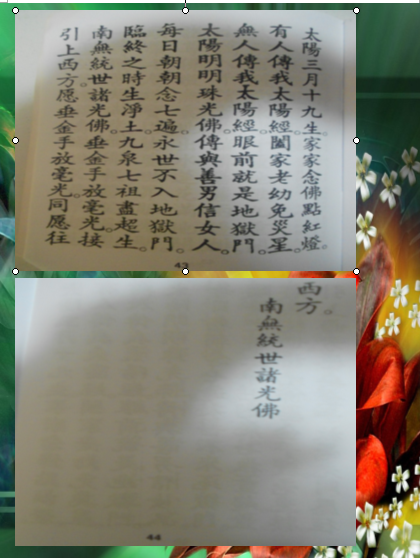 太陽三月十九生。家家念佛點紅燈。
有人傳我太陽經。闔家老幼免災星。
無人傳我太陽經。眼前就是地獄門。
太陽明明珠光佛。傳與善男信女人。
每日朝朝念七遍。永世不入地獄門。
臨終之時生淨土。九泉七祖盡超生。
南無統世諸光佛。垂金手放毫光。接
引上西方。愿垂金手放毫光。同愿往
43
西方。
南無統世諸光佛
44